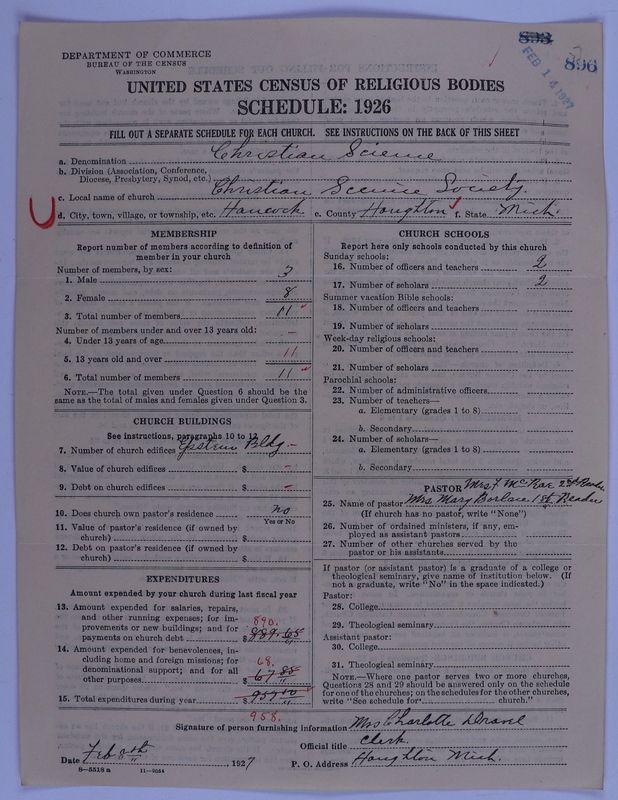 DEPARTMENT OF COMMERCE
BUREAU OF THE CENSUS
WASHINGTON
833
896
FEB 14 1927
UNITED STATES CENSUS OF RELIGIOUS BODIES
SCHEDULE: 1926
FILL OUT A SEPARATE SCHEDULE FOR EACH CHURCH. SEE INSTRUCTIONS ON THE BACK OF THIS SHEET
a. Denomination Christian Science
b. Division (Association, Conference, Diocese, Presbytery, Synod, etc.)
c. Local name of church Christian Science Society.
d. City, town, village, or township, etc. Hancock e. County Houghton f. State Mich.
MEMBERSHIP
Report number of members according to definition of member in your church
Number of members, by sex:
1. Male 3
2. Female 8
3. Total number of members 11
Number of members under and over 13 years old:
4. Under 13 years of age –
5. 13 years old and over 11
6. Total number of members 11
NOTE.—The total given under Question 6 should be the
same as the total of males and females given under Question 3.
CHURCH BUILDINGS
See instructions, paragraphs 10 to 12
7. Number of church edifices Bldg –
8. Value of church edifices $ –
9. Debt on church edifices $ –
10. Does church own pastor's residence no
Yes or No
11. Value of pastor's residence (if owned by
church) $
12. Debt on pastor's residence (if owned by
church) $
EXPENDITURES
Amount expended by your church during last fiscal year
13. Amount expended for salaries, repairs,
and other running expenses; for im-
provements or new buildings; and for
payments on church debt $ 889.65 890.
14. Amount expended for benevolences, in-
cluding home and foreign missions; for
denominational support; and for all
other purposes $ 67 68.
15. Total expenditures during year $ 957
958.
CHURCH SCHOOLS
Report here only schools conducted by this church
Sunday schools:
16. Number of officers and teachers 2
17. Number of scholars 2
Summer vacation Bible schools:
18. Number of officers and teachers
19. Number of scholars
Week-day religious schools:
20. Number of officers and teachers
21. Number of scholars
Parochial schools:
22. Number of administrative officers
23. Number of teachers—
a. Elementary (grades 1 to 8)
b. Secondary
24. Number of scholars—
a. Elementary (grades 1 to 8)
b. Secondary
PASTOR Mrs F McRae 2nd Reader
25. Name of pastor Mrs Mary 1st Reader
(If church has no pastor, write "None")
26. Number of ordained ministers, if any, em-
ployed as assistant pastors
27. Number of other churches served by the
pastor or his assistants
If pastor (or assistant pastor) is a graduate of a college or
theological seminary, give name of institution below. (If
not a graduate, write "No" in the space indicated.)
Pastor:
28. College
29. Theological seminary
Assistant pastor:
30. College
31. Theological seminary
NOTE.—Where one pastor serves two or more churches,
Questions 28 and 29 should be answered only on the schedule
for one of the churches; on the schedules for the other churches,
write "See schedule for church."
Signature of person furnishing information Mrs Charlotte
Official title Clerk.
Date Feb 8th, 1927 P. O. Address Houghton Mich.
8—5518 a 11—9054